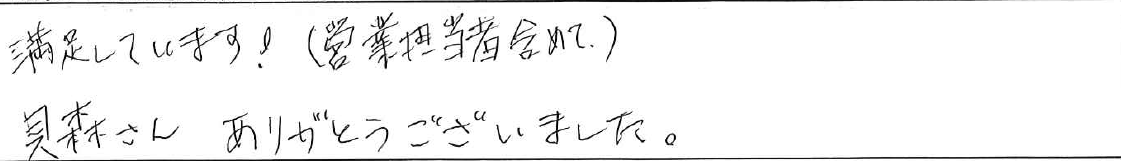 満足しています!(営業担当者含めて.)
貝森さん ありがとうございました。